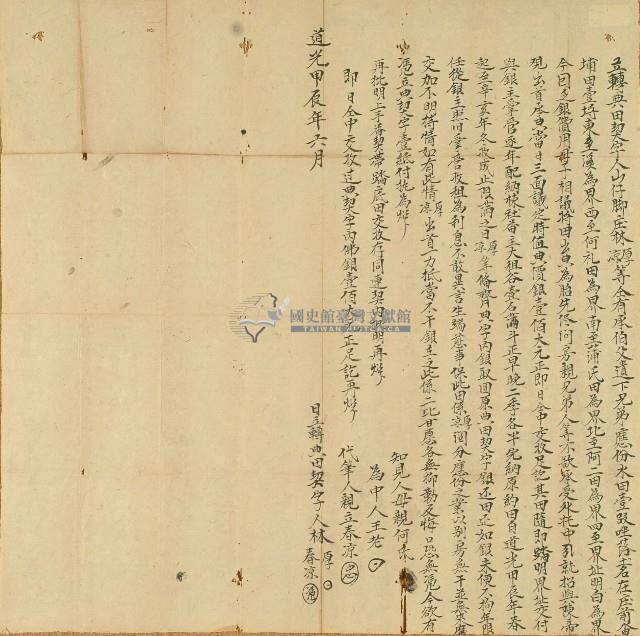 立轉典田契字人山仔脚庄林厚凉等仝有承伯父遺下兄弟應份水田壹段坐落土名在庄前
埔田壹坵東至溪為界西至何礼田為界南至蒲氏田為界北至阿二田為界四至界址明白為界
今因乏銀費用母子相議將田出典為胎先尽問房親兄弟人等不欲承受外托中引就招與陳
現出首承典當日三面議定時值典價銀壹伯大元正即日仝中交收足訖其田隨即踏明界址交付
與銀主掌管逐年配納
社番
大租谷壹石滿斗正早晚二季各半完納原約田自道光甲辰年春
起至辛亥年冬收成止限滿之日厚凉等備齊典字內銀取回原典田契字銀还田还如銀未便不拘年限
任從銀主照旧掌管收租為利息不敢異言生端
事保此田係厚凉
分應份之業以別房無干並無
交加不明等情如有此情厚凉出首一力抵當不干銀主之此係二比甘愿各無抑勒反悔口恐無憑今欲有
憑立典契字壹紙付执為炤
再批明上手番契帶踏底田交收存同連契內
明再炤
即日仝中交收过典契字內佛銀壹佰大
正足訖再炤
知見人母親何氏
為中人王老
代筆人親立春凉
道光甲辰年六月 日立轉典田契字人林厚
春凉
國史館臺灣文獻館
TAIWAN HISTORICA